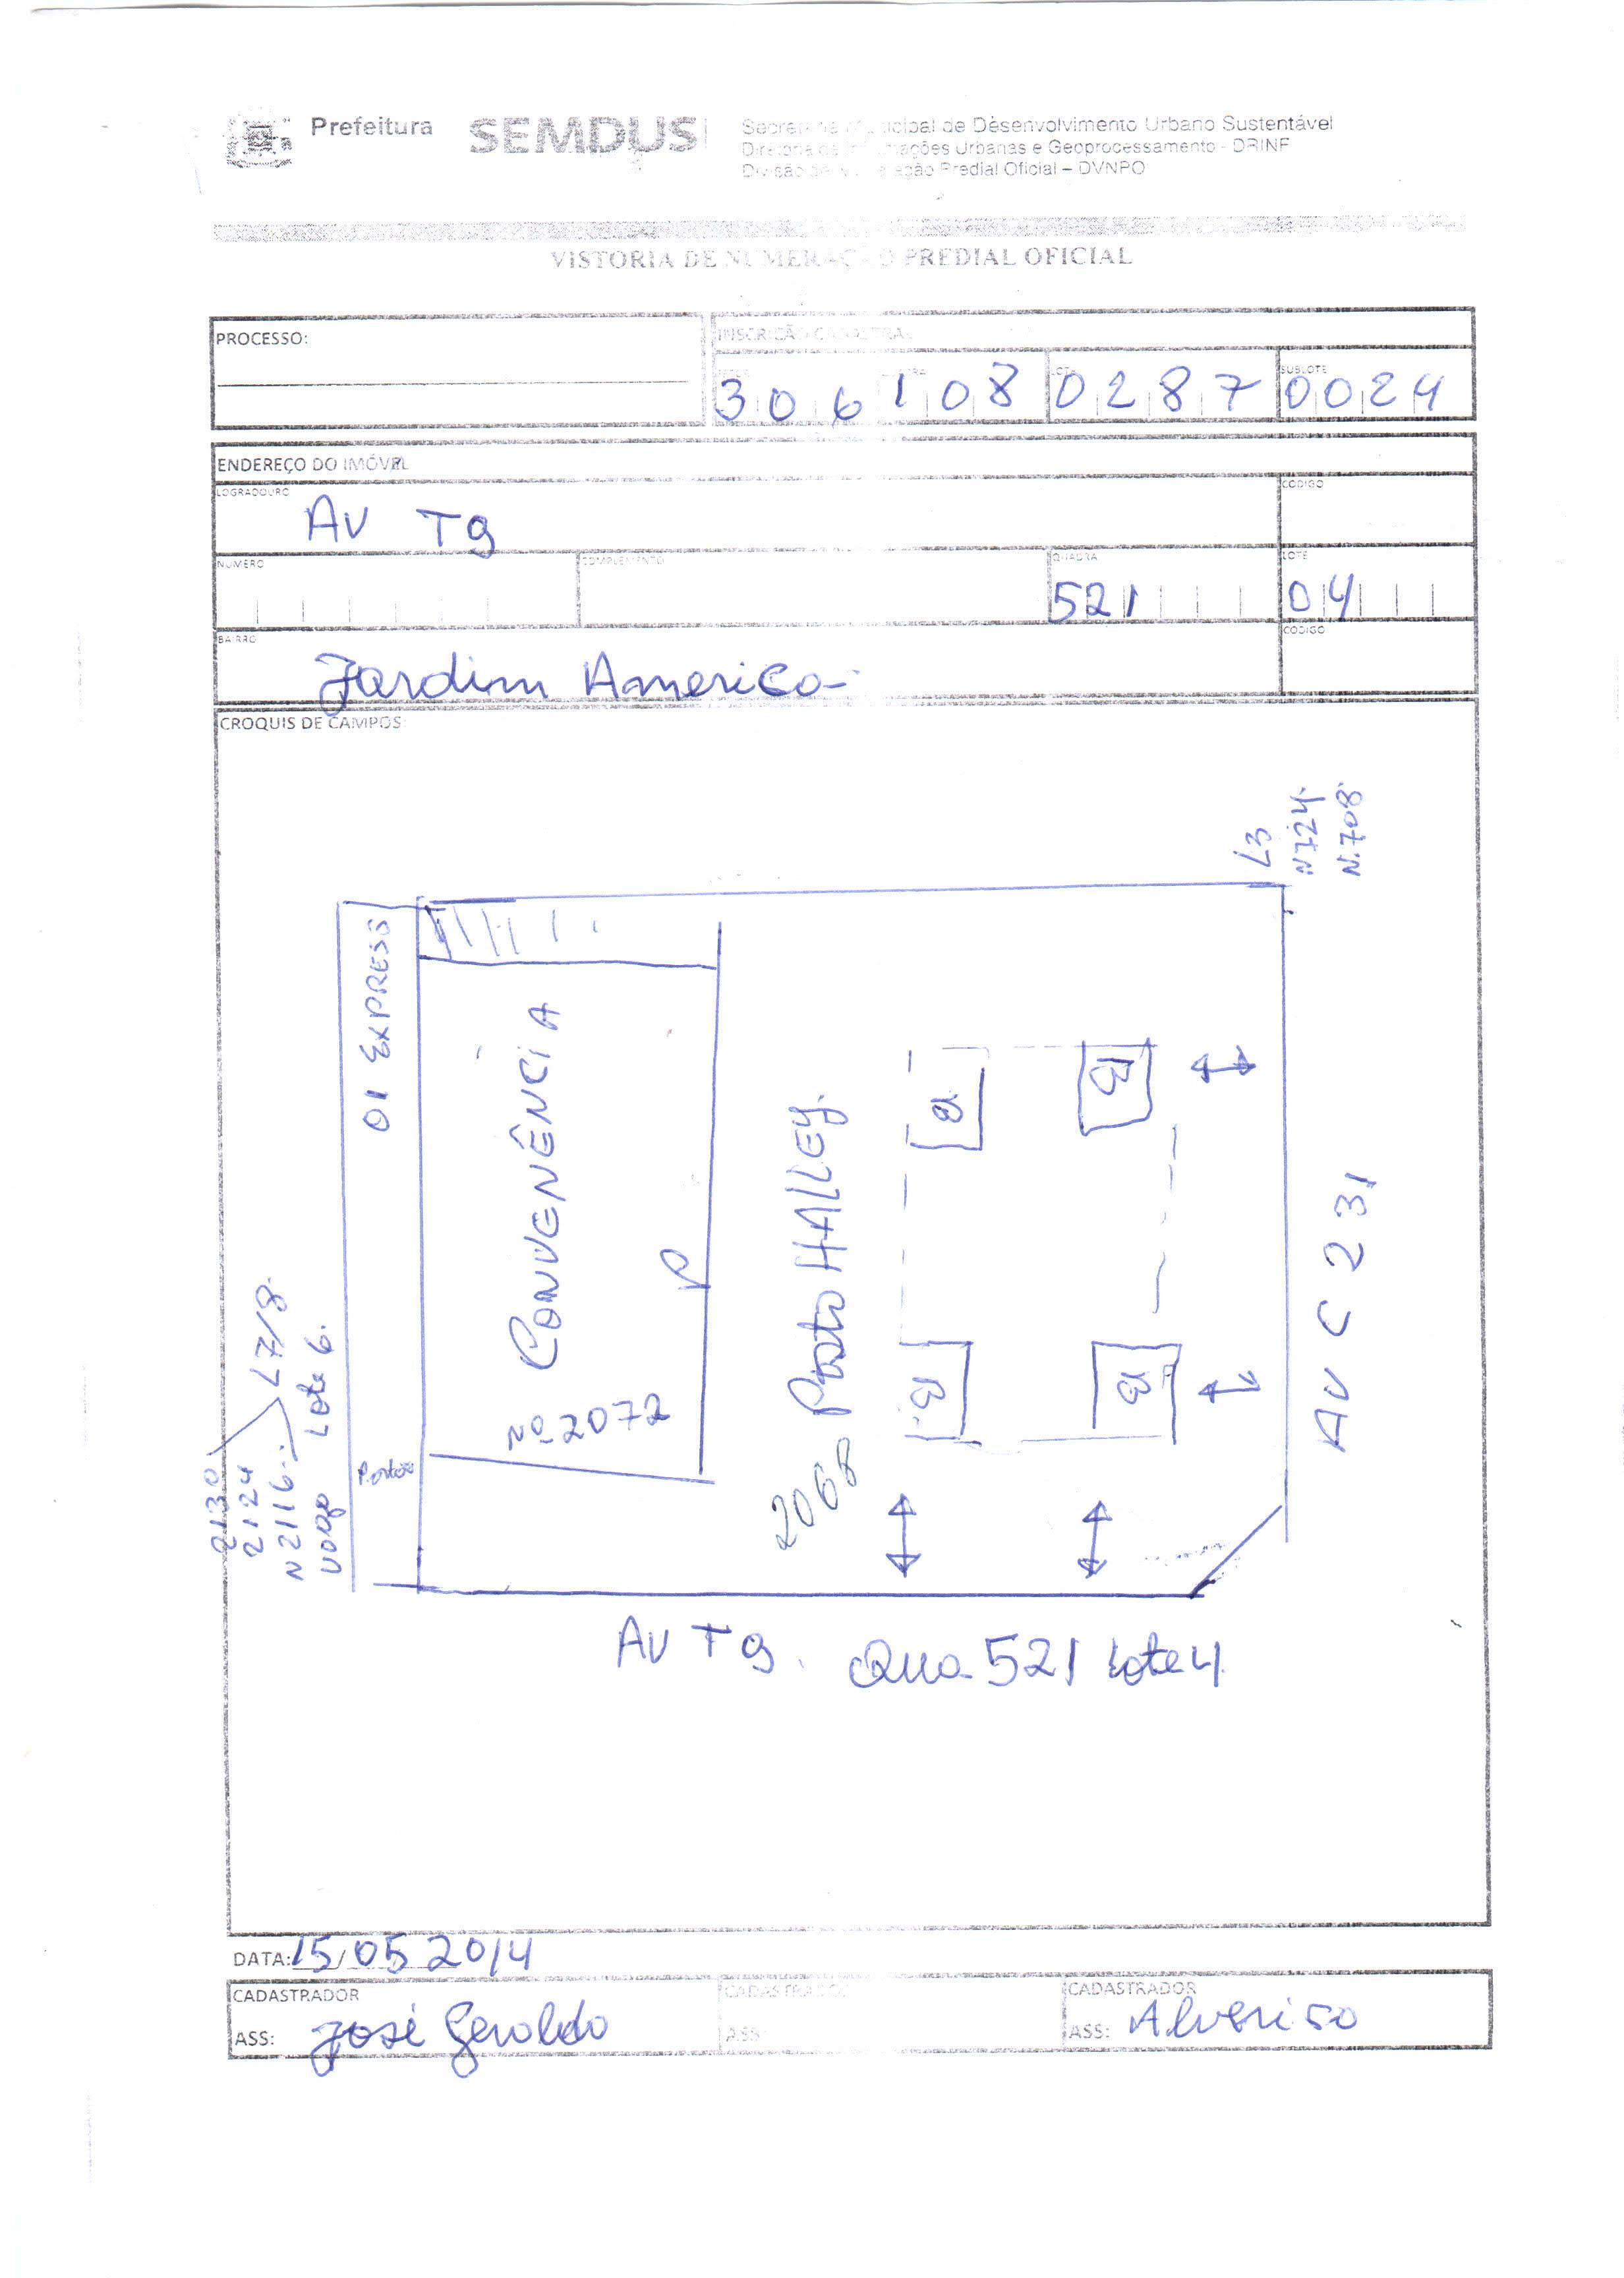 Prefeitura SEMDUS
Secretaria Municipal de Desenvolvimento Urbano Sustentável
Diretoria de Informações Urbanas e Geoprocessamento - DRINF
Divisão de Numeração Predial Oficial – DVNPO
VISTORIA DE NUMERAÇÃO PREDIAL OFICIAL
PROCESSO:
INSCRIÇÃO CADASTRAL
LOTE SUBLOTE
306 108 0287 0024
ENDEREÇO DO IMÓVEL
LOGRADOURO CÓDIGO
AV T9
NÚMERO COMPLEMENTO QUADRA LOTE
521 04
BAIRRO CÓDIGO
Jardim America
CROQUIS DE CAMPOS
L3
N724.
N.708.
01 EXPRESS
CONVENÊNCIA
Nº 2072
P
Posto HALLEY.
2068
AV C 231
2130
2124
N2116. L7/8.
vago Lote 6.
Portão
AV T9. Qua 521 Lote 4
DATA: 15/05 2014
CADASTRADOR CADASTRADOR CADASTRADOR
ASS: José Geraldo ASS: ASS: Alveriso